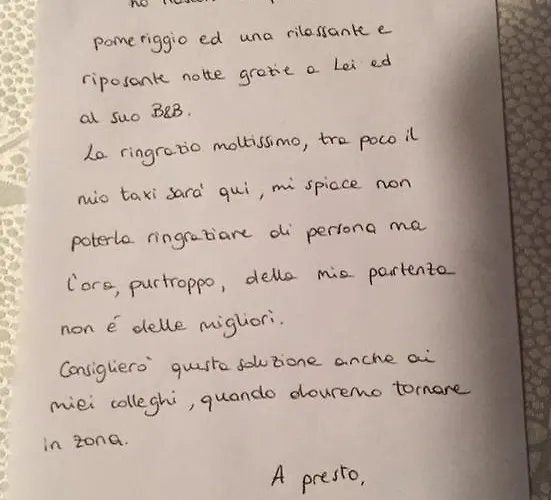 ho
pomeriggio ed una rilassante e
riposante notte grazie a Lei ed
al suo B&B.
La ringrazio moltissimo, tra poco il
mio taxi sara' qui, mi spiace non
poterla ringraziare di persona ma
l'ora, purtroppo, della mia partenza
non é delle migliori.
Consiglierò questa soluzione anche ai
miei colleghi, quando dovremo tornare
in zona.
A presto,